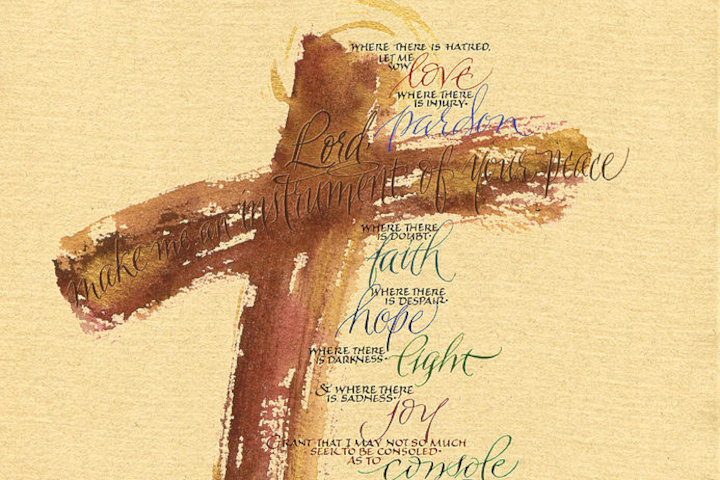 Lord,
make me an instrument of your peace
WHERE THERE IS HATRED,
LET ME
SOW
love
WHERE THERE
IS INJURY·
pardon
WHERE THERE
IS DOUBT·
faith
WHERE THERE
IS DESPAIR·
hope
WHERE THERE
IS DARKNESS·
light
& WHERE THERE
IS SADNESS·
joy
GRANT THAT I MAY NOT SO MUCH
SEEK TO BE CONSOLED·
AS TO
console